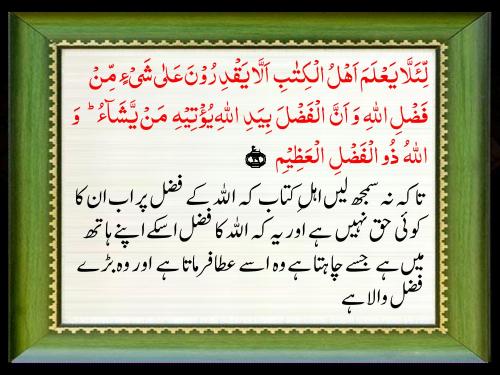 لِّئَلَّا يَعْلَمَ اَهْلُ الْكِتٰبِ اَلَّا يَقْدِرُوْنَ عَلٰى شَىْءٍ مِّنْ
فَضْلِ اللهِ وَ اَنَّ الْفَضْلَ بِيَدِ اللهِ يُؤْتِيْهِ مَنْ يَّشَآءُ ؕ وَ
اللهُ ذُو الْفَضْلِ الْعَظِيْمِ ﴿۲۹﴾
تا کہ نہ سمجھ لیں اہلِ کتاب کہ اللہ کے فضل پر اب ان کا
کوئی حق نہیں ہے اور یہ کہ اللہ کا فضل اسکے اپنے ہاتھ
میں ہے جسے چاہتا ہے وہ اسے عطا فرماتا ہے اور وہ بڑے
فضل والا ہے